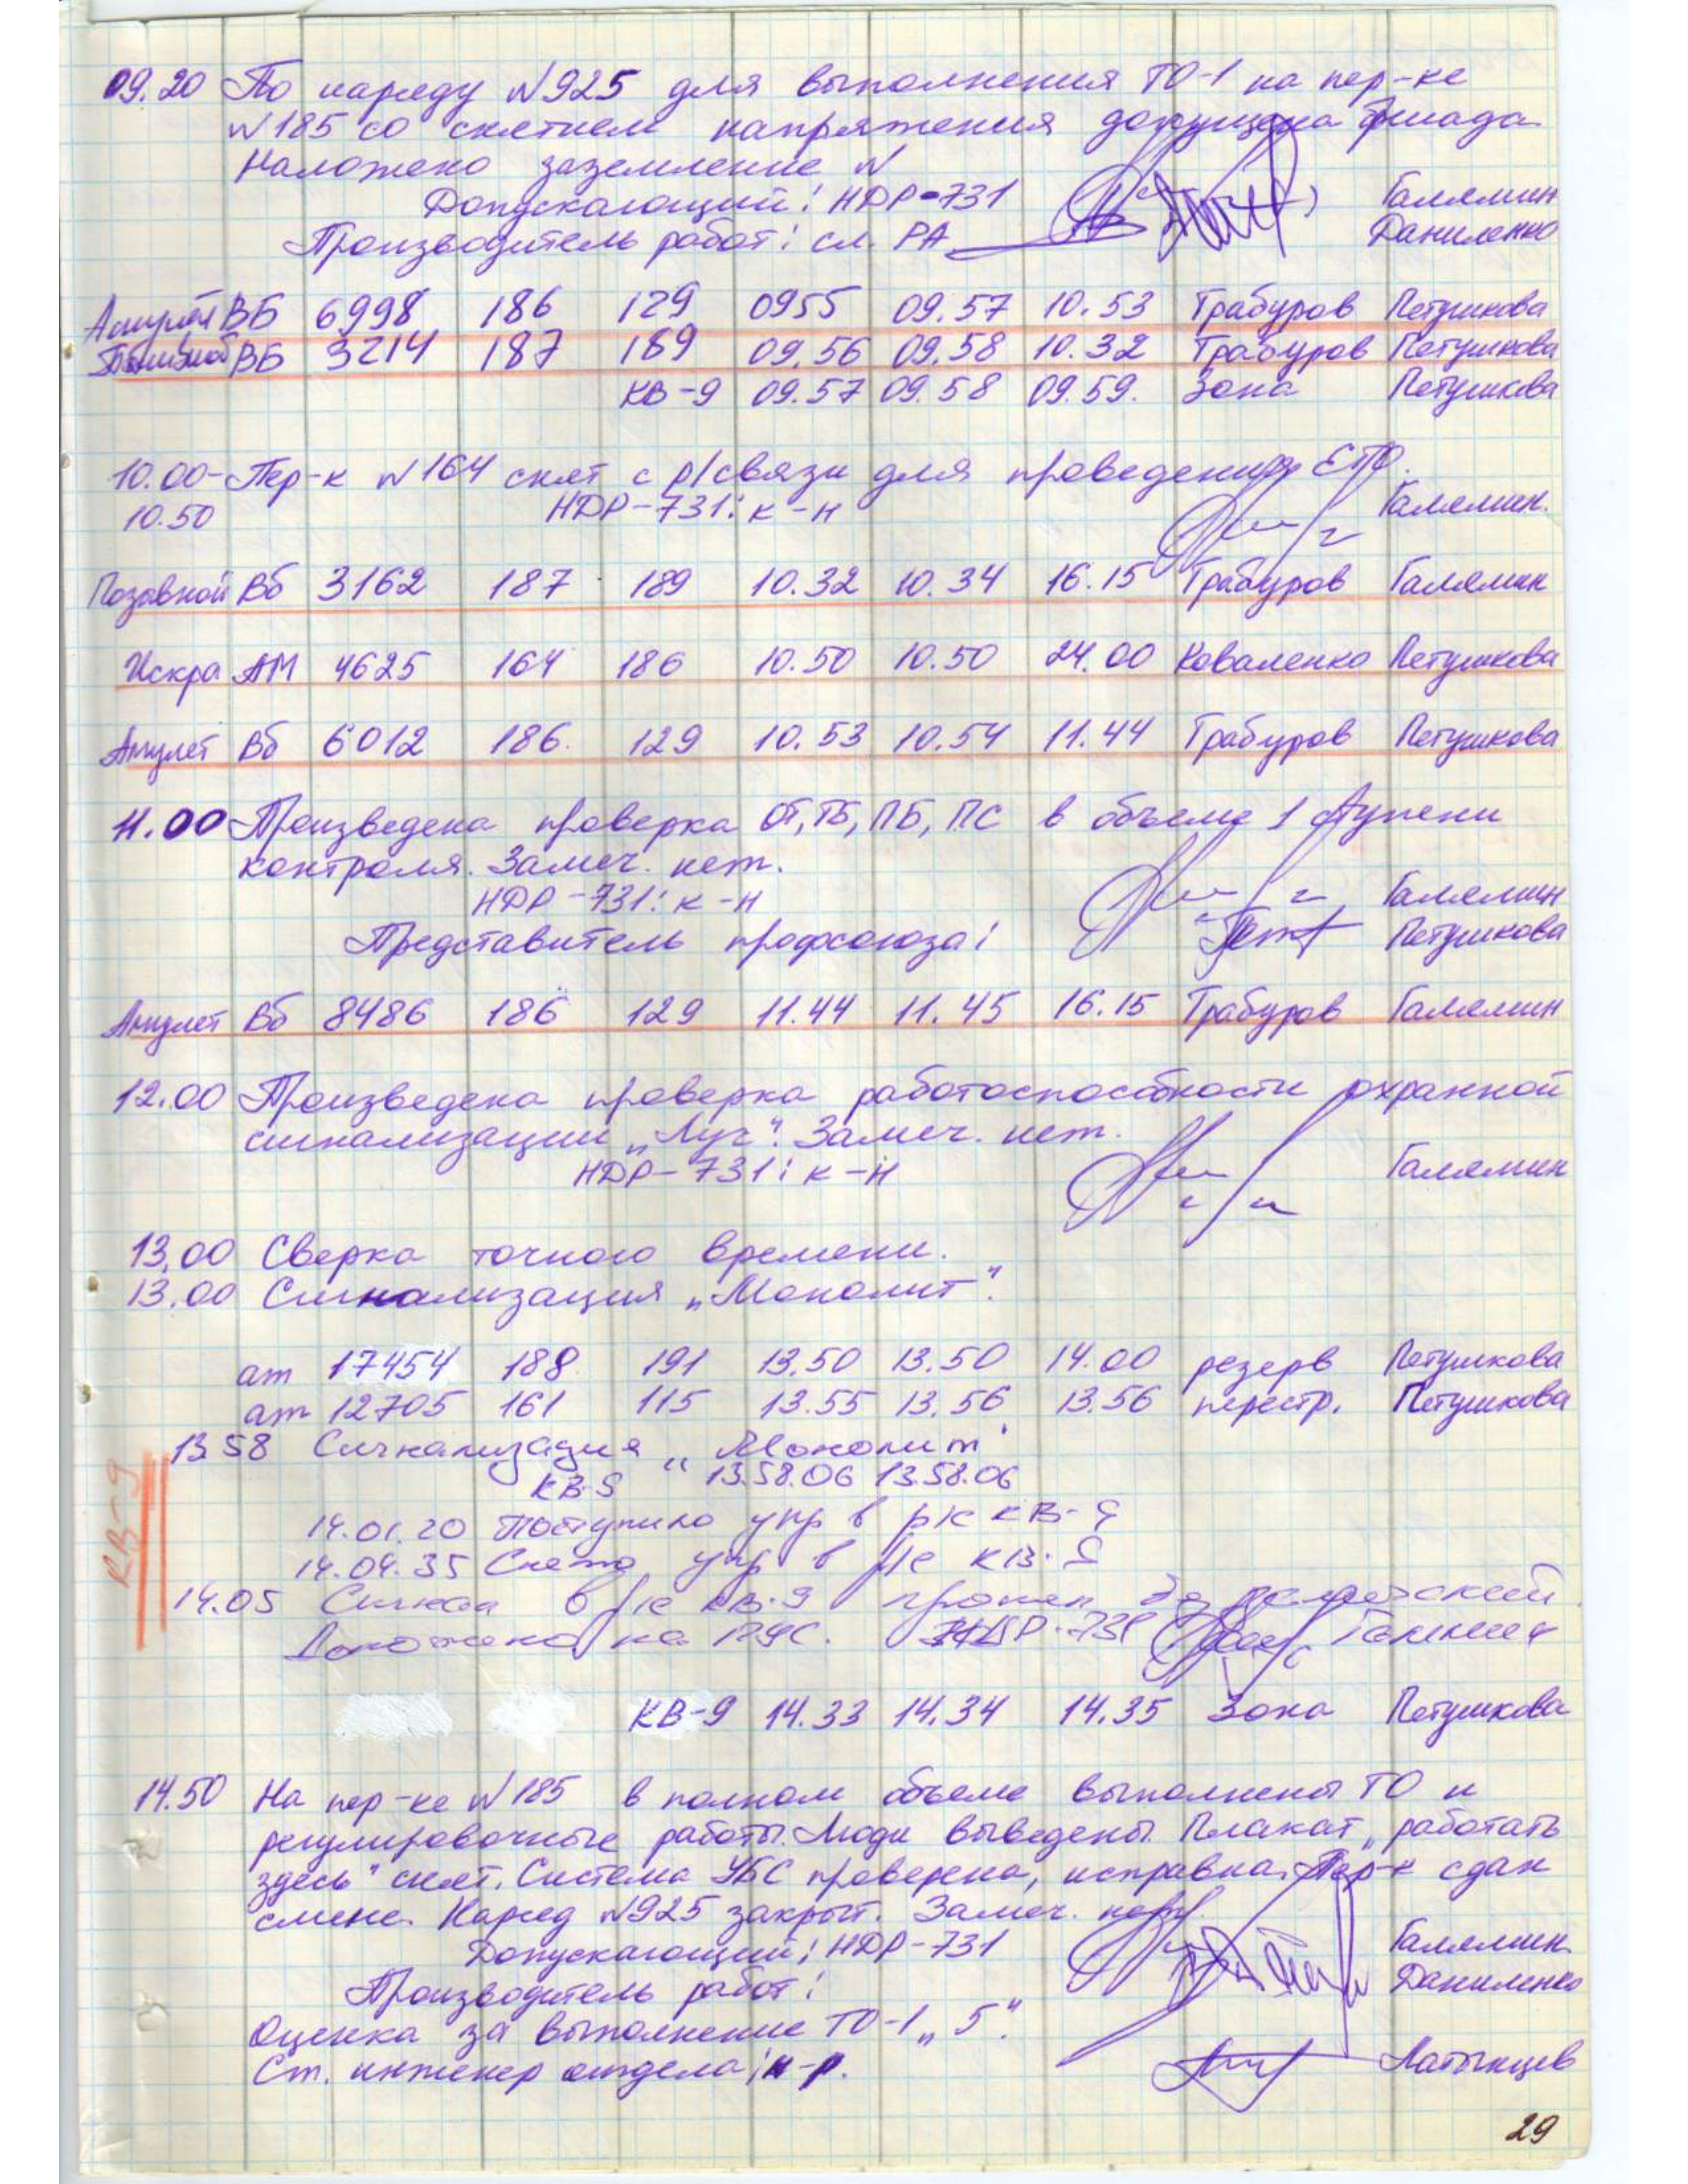 09.20 По наряду №925 для выполнения ТО-1 на пер-ке
№185 со снятием напряжения допущена бригада
Наложено заземление №
Допускающий: НДР-731 Галямин
Производитель работ: сл. РА Даниленко
Амулет ВБ 6998 186 129 0955 09.57 10.53 Трабуров Петушкова
ВБ 3214 187 189 09.56 09.58 10.32 Трабуров Петушкова
КВ-9 09.57 09.58 09.59. Зона Петушкова
10.00- Пер-к №164 снят с р/связи для проведения ЕТО.
10.50 НДР-731: к-н Галямин.
Позывной Вб 3162 187 189 10.32 10.34 16.15 Трабуров Галямин
Искра АМ 4625 164 186 10.50 10.50 24.00 Коваленко Петушкова
Амулет Вб 6012 186. 129 10.53 10.54 11.44 Трабуров Петушкова
11.00 Произведена проверка ОТ, ТБ, ПБ, ПС в объеме 1 ступени
контроля. Замеч. нет.
НДР-731: к-н Галямин
Представитель профсоюза: Петушкова
Амулет Вб 8486 186 129 11.44 11.45 16.15 Трабуров Галямин
12.00 Произведена проверка работоспособности охранной
сигнализации „Луч". Замеч. нет.
НДР-731: к-н Галямин
13.00 Сверка точного времени.
13.00 Сигнализация „Монолит".
ат 17454 188 191 13.50 13.50 14.00 резерв Петушкова
ат 12705 161 115 13.55 13.56 13.56 перестр. Петушкова
13 58 Сигнализация „Монолит"
КВ-9
КВ-9 13.58.06 13.58.06
14.01.20 Поступило упр в р/с КВ-9
14.04.35 Снято упр в р/с КВ-9
14.05 Сигнал в р/с КВ-9 прошел
Доложено на ПУС. НДР-731 Галямин
КВ-9 14.33 14.34 14.35 Зона Петушкова
14.50 На пер-ке №185 в полном объеме выполнены ТО и
регулировочные работы. Люди выведены. Плакат „работать
здесь" снят. Система УБС проверена, исправна. Пер-к сдан
смене. Наряд №925 закрыт. Замеч. нет.
Допускающий: НДР-731 Галямин
Производитель работ: Даниленко
Оценка за выполнение ТО-1 „5".
Ст. инженер отдела: к-р. Латынцев
29